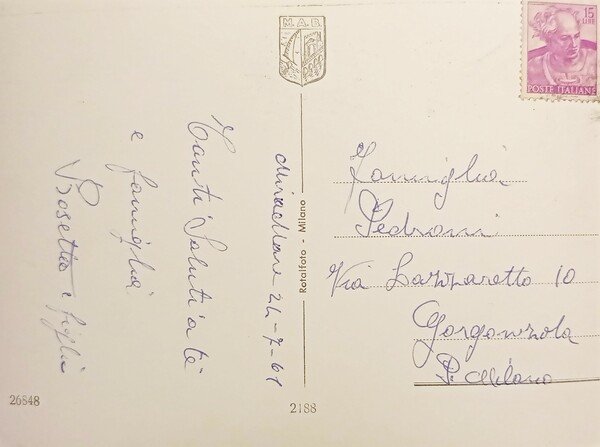 M.A.B.
15
LIRE
POSTE ITALIANE
Miramare 24-7-61
Tanti Saluti a te
e famiglia
Rosetta e figli
Rotalfoto - Milano
Famiglia
Pedroni
Via Lazzaretto 10
Gorgonzola
P. Milano
26848
2188